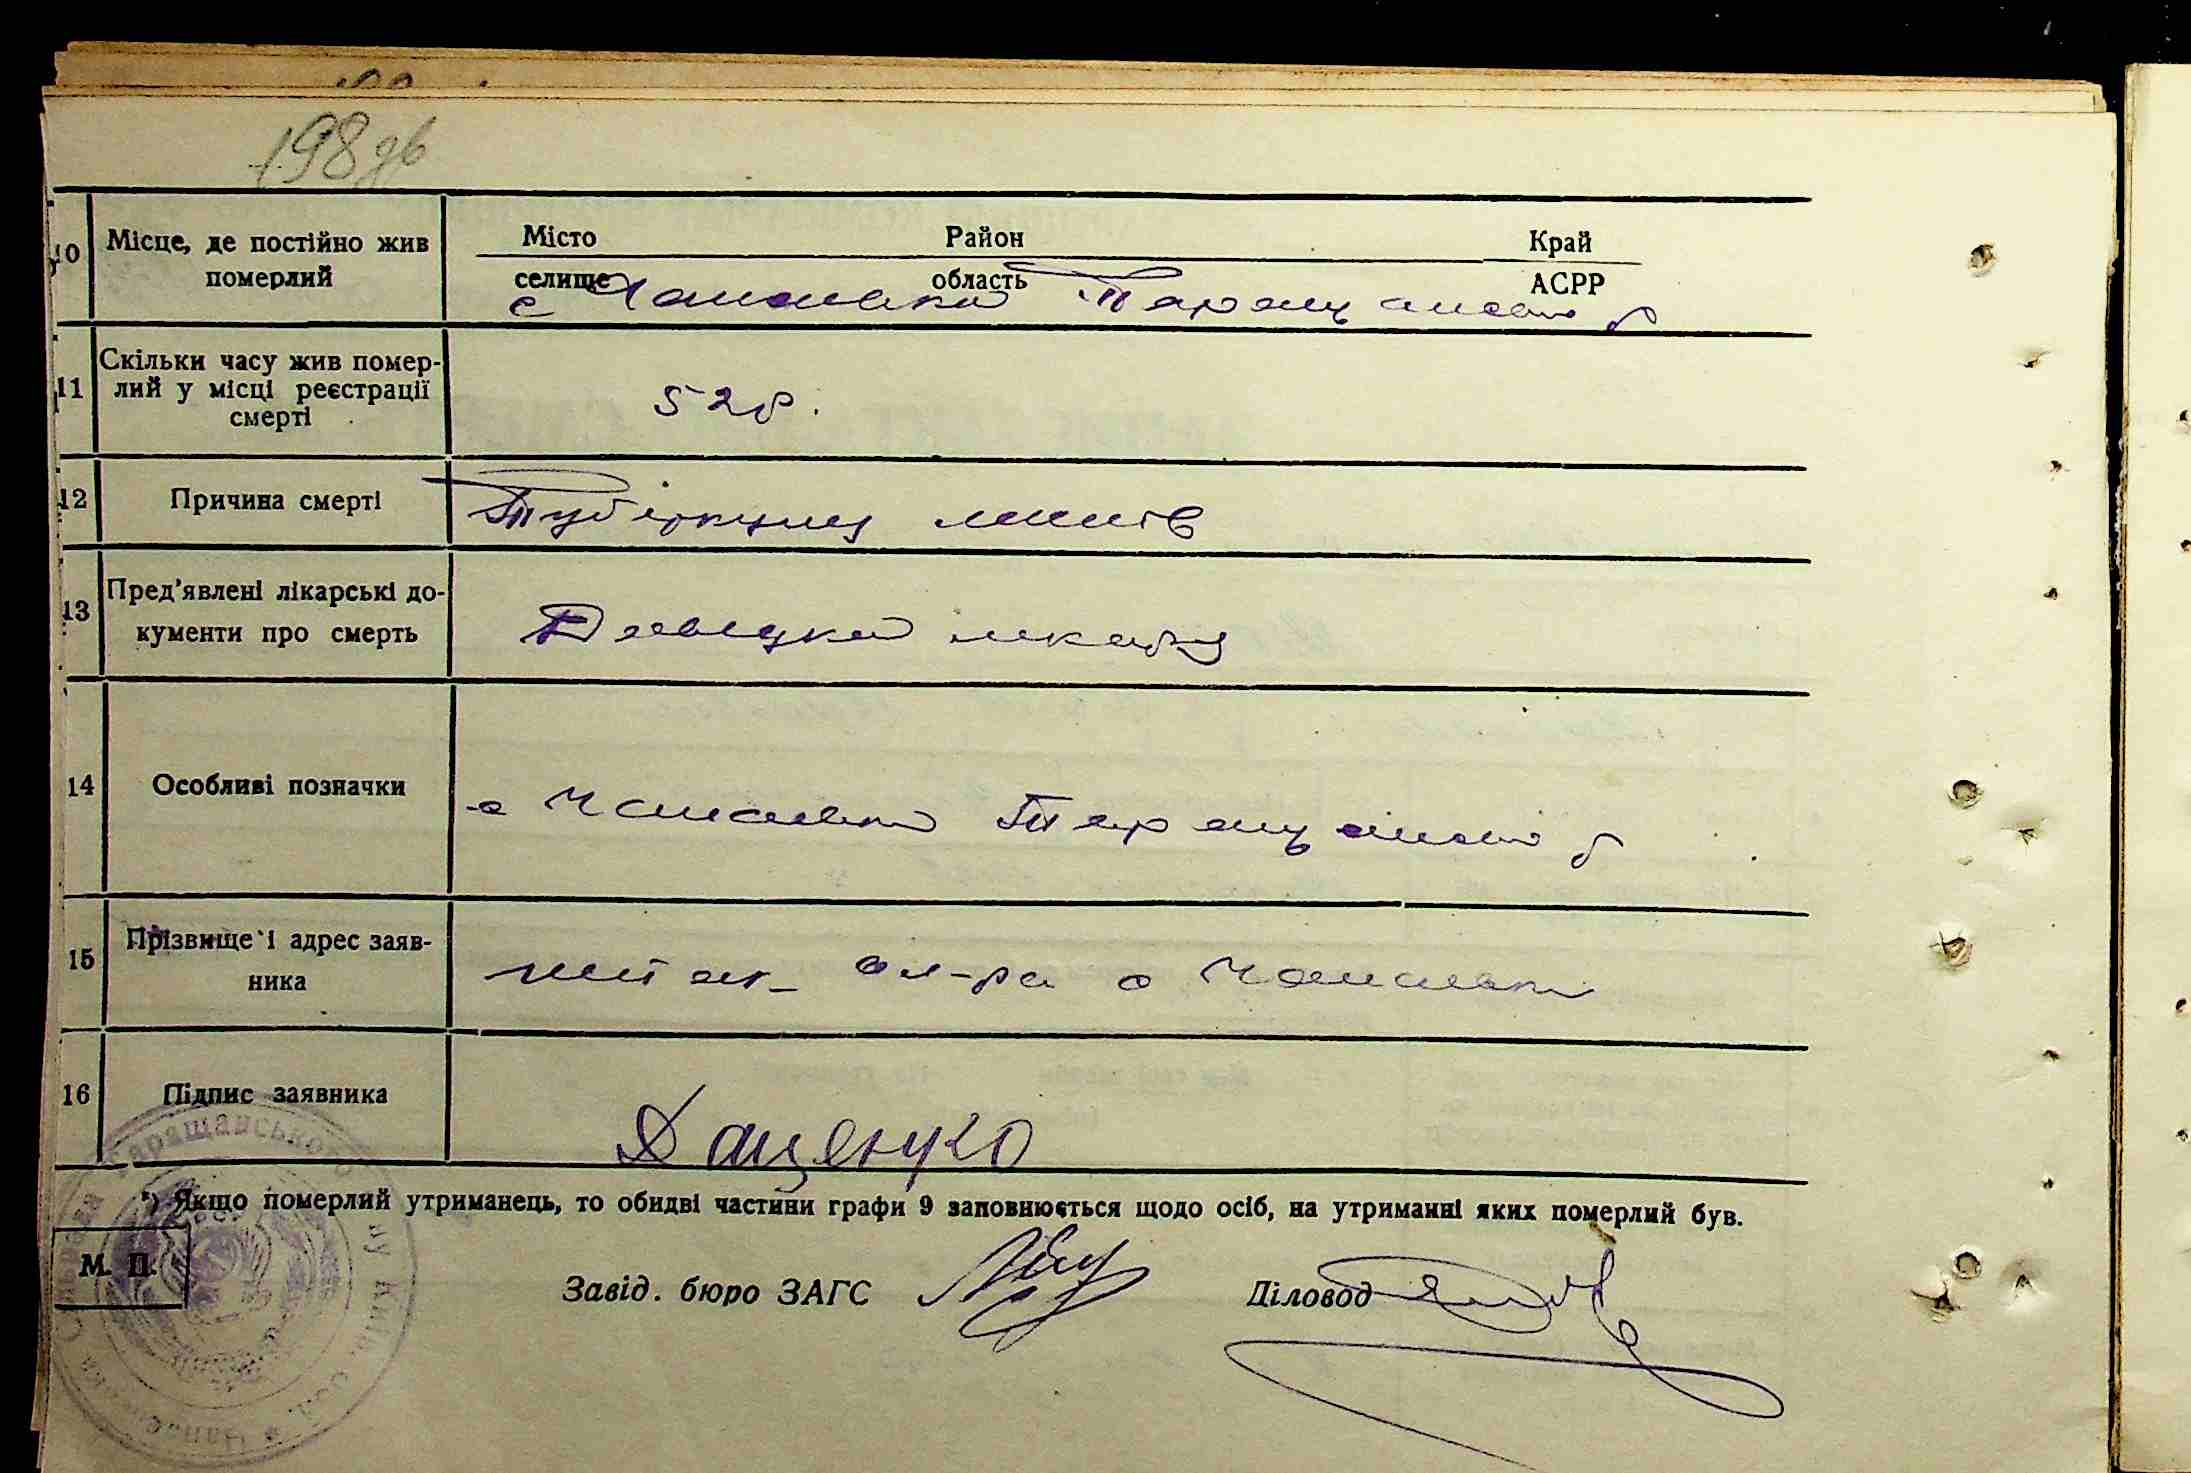 198 зв
10 Місце, де постійно жив померлий
Місто Район Край
селище область АСРР
с Чапаєвка Таращанського р
11 Скільки часу жив помер-
лий у місці реєстрації
смерті
52 р.
12 Причина смерті
Туберкульоз легенів
13 Пред’явлені лікарські до-
кументи про смерть
Довідка лікаря
14 Особливі позначки
с Чапаєвка Таращанського р
15 Прізвище і адрес заяв-
ника
с Чапаєвка
16 Підпис заявника
Даценко
*) Якщо померлий утриманець, то обидві частини графи 9 заповнюється щодо осіб, на утриманні яких померлий був.
М. П.
Завід. бюро ЗАГС
Діловод
Таращанського